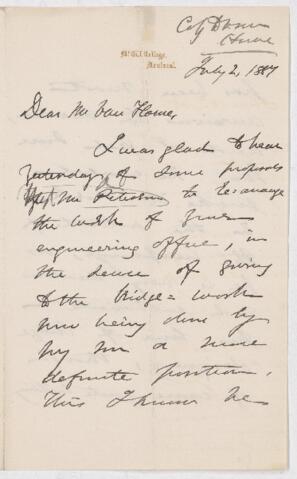 McGill College,
Montreal.
July 2, 1887
Dear Mr Van Horne,
I was glad to hear
yesterday of some proposals
Mr Peterson to re-arrange
the work of your
engineering office, in
the sense of giving
to the bridge work
now being done by
my son a more
definite position.
This I know he